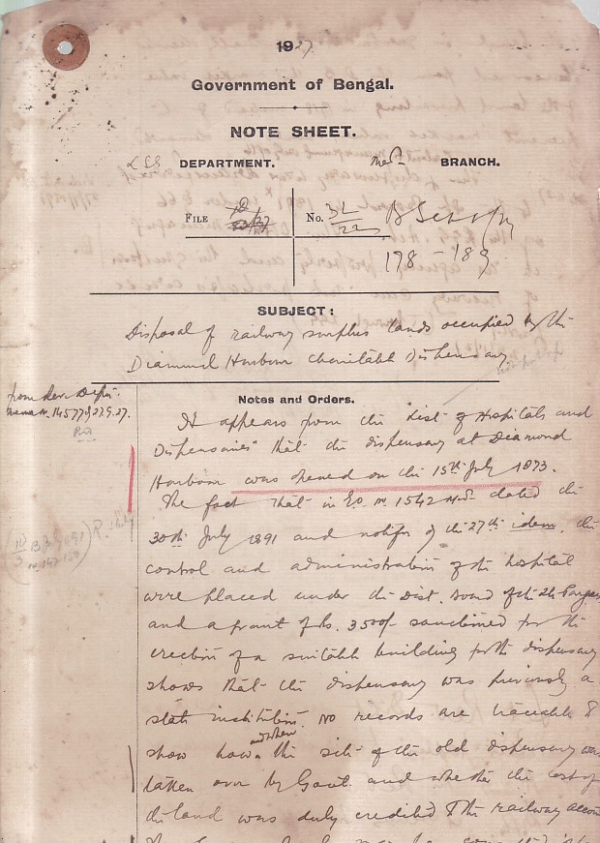 1927.
Government of Bengal.
NOTE SHEET.
LSG DEPARTMENT. Med. BRANCH.
FILE No. 3L
22
178 – 189
SUBJECT:
Disposal of railway surplus lands occupied by the
Diamond Harbour Charitable Dispensary.
Notes and Orders.
from Rev. Dept.
memo no. 14577 d/ 22.9.27.
It appears from the "List of Hospitals and
Dispensaries" that the dispensary at Diamond
Harbour was opened on the 15th July 1873.
The fact that in G.O. no 1542 dated the
30th July 1891 and notifn of the 27th idem, the
control and administration of the hospital
were placed under the Dist. Board of the 24 Pargas
and a grant of Rs. 3500/- sanctioned for the
erection of a suitable building for the dispensary
shows that the dispensary was previously a
state institution. No records are traceable to
show how and when the site of the old dispensary was
taken over by Govt. and whether the cost of
the land was duly credited to the railway accou